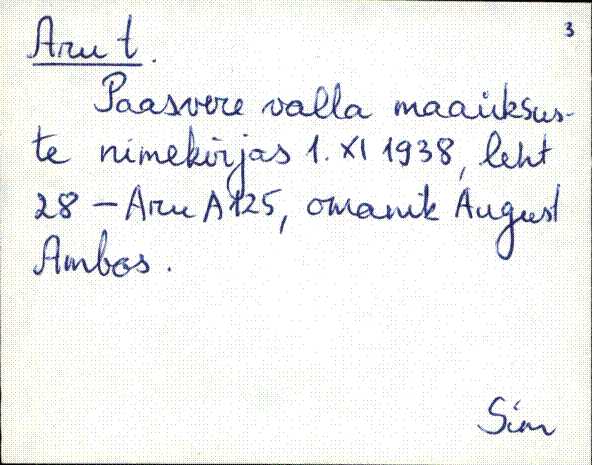 3
Aru t.
Paasvere valla maaüksus-
te nimekirjas 1. XI 1938, leht
28 – Aru A125, omanik August
Ambos.
Sim